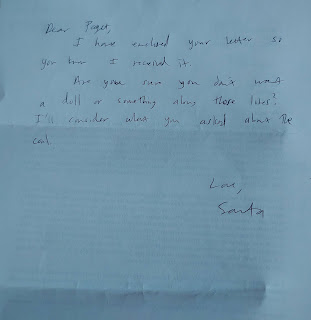 Dear Paget,
I have enclosed your letter so
you know I received it.
Are you sure you don't want
a doll or something along those lines?
I'll consider what you asked about the
coal.
Love,
Santa